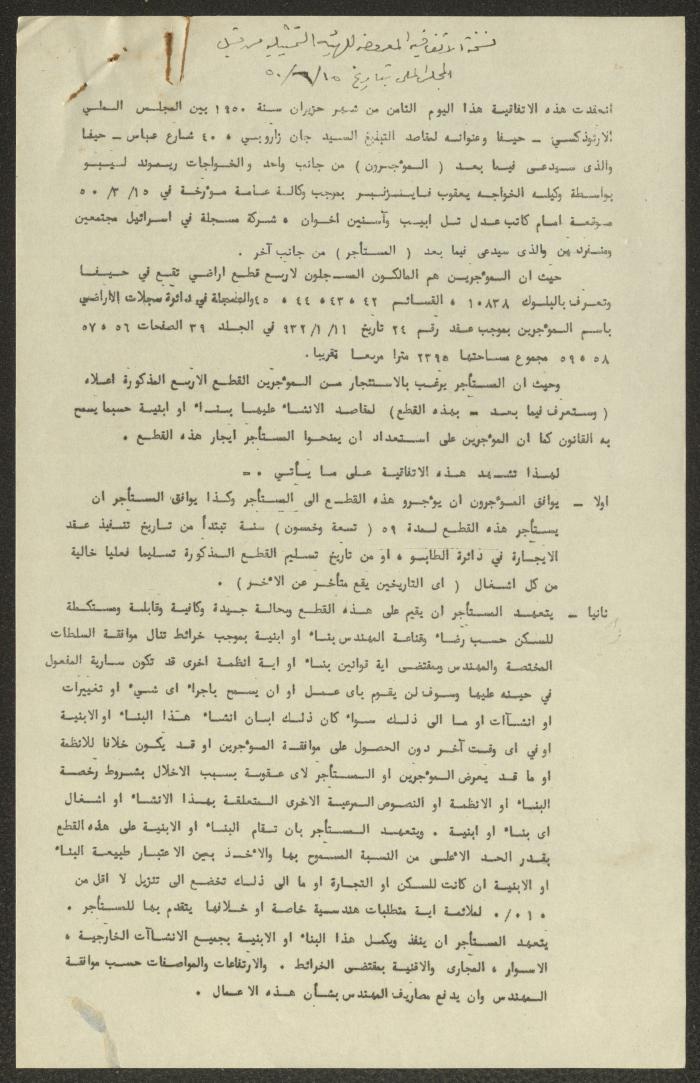 نسخة الاتفاقية المعروضة للهيئة التمثيلية من قبل
المجلس الملي بتاريخ ٥٠/٦/١٥
انعقدت هذه الاتفاقية هذا اليوم الثامن من شهر حزيران سنة ١٩٥٠ بين المجلس الملي
الارثوذكسي - حيفا وعنوانه لمقاصد التبليغ السيد جان زاروبي ، ٤٠ شارع عباس - حيفا
والذي سيدعى فيما بعد ( الموءجرون ) من جانب واحد والخواجات ريموند ليبو
بواسطة وكيله الخواجه يعقوب فاينزنبر بموجب وكالة عامة موءرخة في ١٥/ ٣/ ٥٠
موقعة امام كاتب عدل تل ابيب وآسنين اخوان ، شركة مسجلة في اسرائيل مجتمعين
ومنفردين والذى سيدعى فيما بعد ( المستأجر ) من جانب آخر .
حيث ان الموءجرين هم المالكون المسجلون لاربع قطع اراضي تقع في حيفا
وتعرف بالبلوك ١٠٨٣٨ ، القسائم ٤٢ ، ٤٣ ، ٤٤ ، ٤٥ والمسجلة في دائرة سجلات الاراضي
باسم الموءجرين بموجب عقد رقم ٢٤ تاريخ ٩٣٢/١/١١ في الجلد ٣٩ الصفحات ٥٦ ، ٥٧
٥٨ ، ٥٩ مجموع مساحتها ٢٣٩٥ مترا مربعا تقريبا .
وحيث ان المستأجر يرغب بالاستئجار من الموءجرين القطع الاربع المذكورة اعلاه
( وستعرف فيما بعد - بهذه القطع ) لمقاصد الانشاء عليها بناء او ابنية حسبما يسمح
به القانون كما ان الموءجرين على استعداد ان يمنحوا المستأجر ايجار هذه القطع .
لهذا تشهد هذه الاتفاقية على ما يأتي . -
اولا - يوافق الموءجرون ان يوءجرو هذه القطع الى المستأجر وكذا يوافق المستأجر ان
يستأجر هذه القطع لمدة ٥٩ ( تسعة وخمسون ) سنة تبتدأ من تاريخ تنفيذ عقد
الايجارة في دائرة الطابو ، او من تاريخ تسليم القطع المذكورة تسليما فعليا خالية
من كل اشغال ( اى التاريخين يقع متأخر عن الاخر ) .
ثانيا - يتعهد المستأجر ان يقيم على هذه القطع وبحالة جيدة وكافية وقابلة ومستكملة
للسكن حسب رضاء وقناعة المهندس بناء او ابنية بموجب خرائط تنال موافقة السلطات
المختصة والمهندس وبمقتضى اية قوانين بناء او اية انظمة اخرى قد تكون سارية المفعول
في حينه عليها وسوف لن يقوم باى عمل او ان يسمح باجراء اى شيء او تغييرات
او انشاآت او ما الى ذلك سواء كان ذلك ابان انشاء هذا البناء او الابنية
او في اى وقت آخر دون الحصول على موافقة الموءجرين او قد يكون خلافا للانظمة
او ما قد يعرض الموءجرين او المستأجر لاى عقوبة بسبب الاخلال بشروط رخصة
البناء او الانظمة او النصوص المرعية الاخرى المتعلقة بهذا الانشاء او اشغال
اى بناء او ابنية . ويتعهد المستأجر بان تقام البناء او الابنية على هذه القطع
بقدر الحد الاعلى من النسبة المسموح بها والاخذ بعين الاعتبار طبيعة البناء
او الابنية ان كانت للسكن او التجارة او ما الى ذلك تخضع الى تنزيل لا اقل من
١٠ ./. لملائمة اية متطلبات هندسية خاصة او خلافها يتقدم بها للمستأجر .
يتعهد المستأجر ان ينفذ ويكمل هذا البناء او الابنية بجميع الانشاآت الخارجية ،
الاسوار ، المجارى والاقنية بمقتضى الخرائط . والارتفاعات والمواصفات حسب موافقة
المهندس وان يدفع مصاريف المهندس بشأن هذه الاعمال .